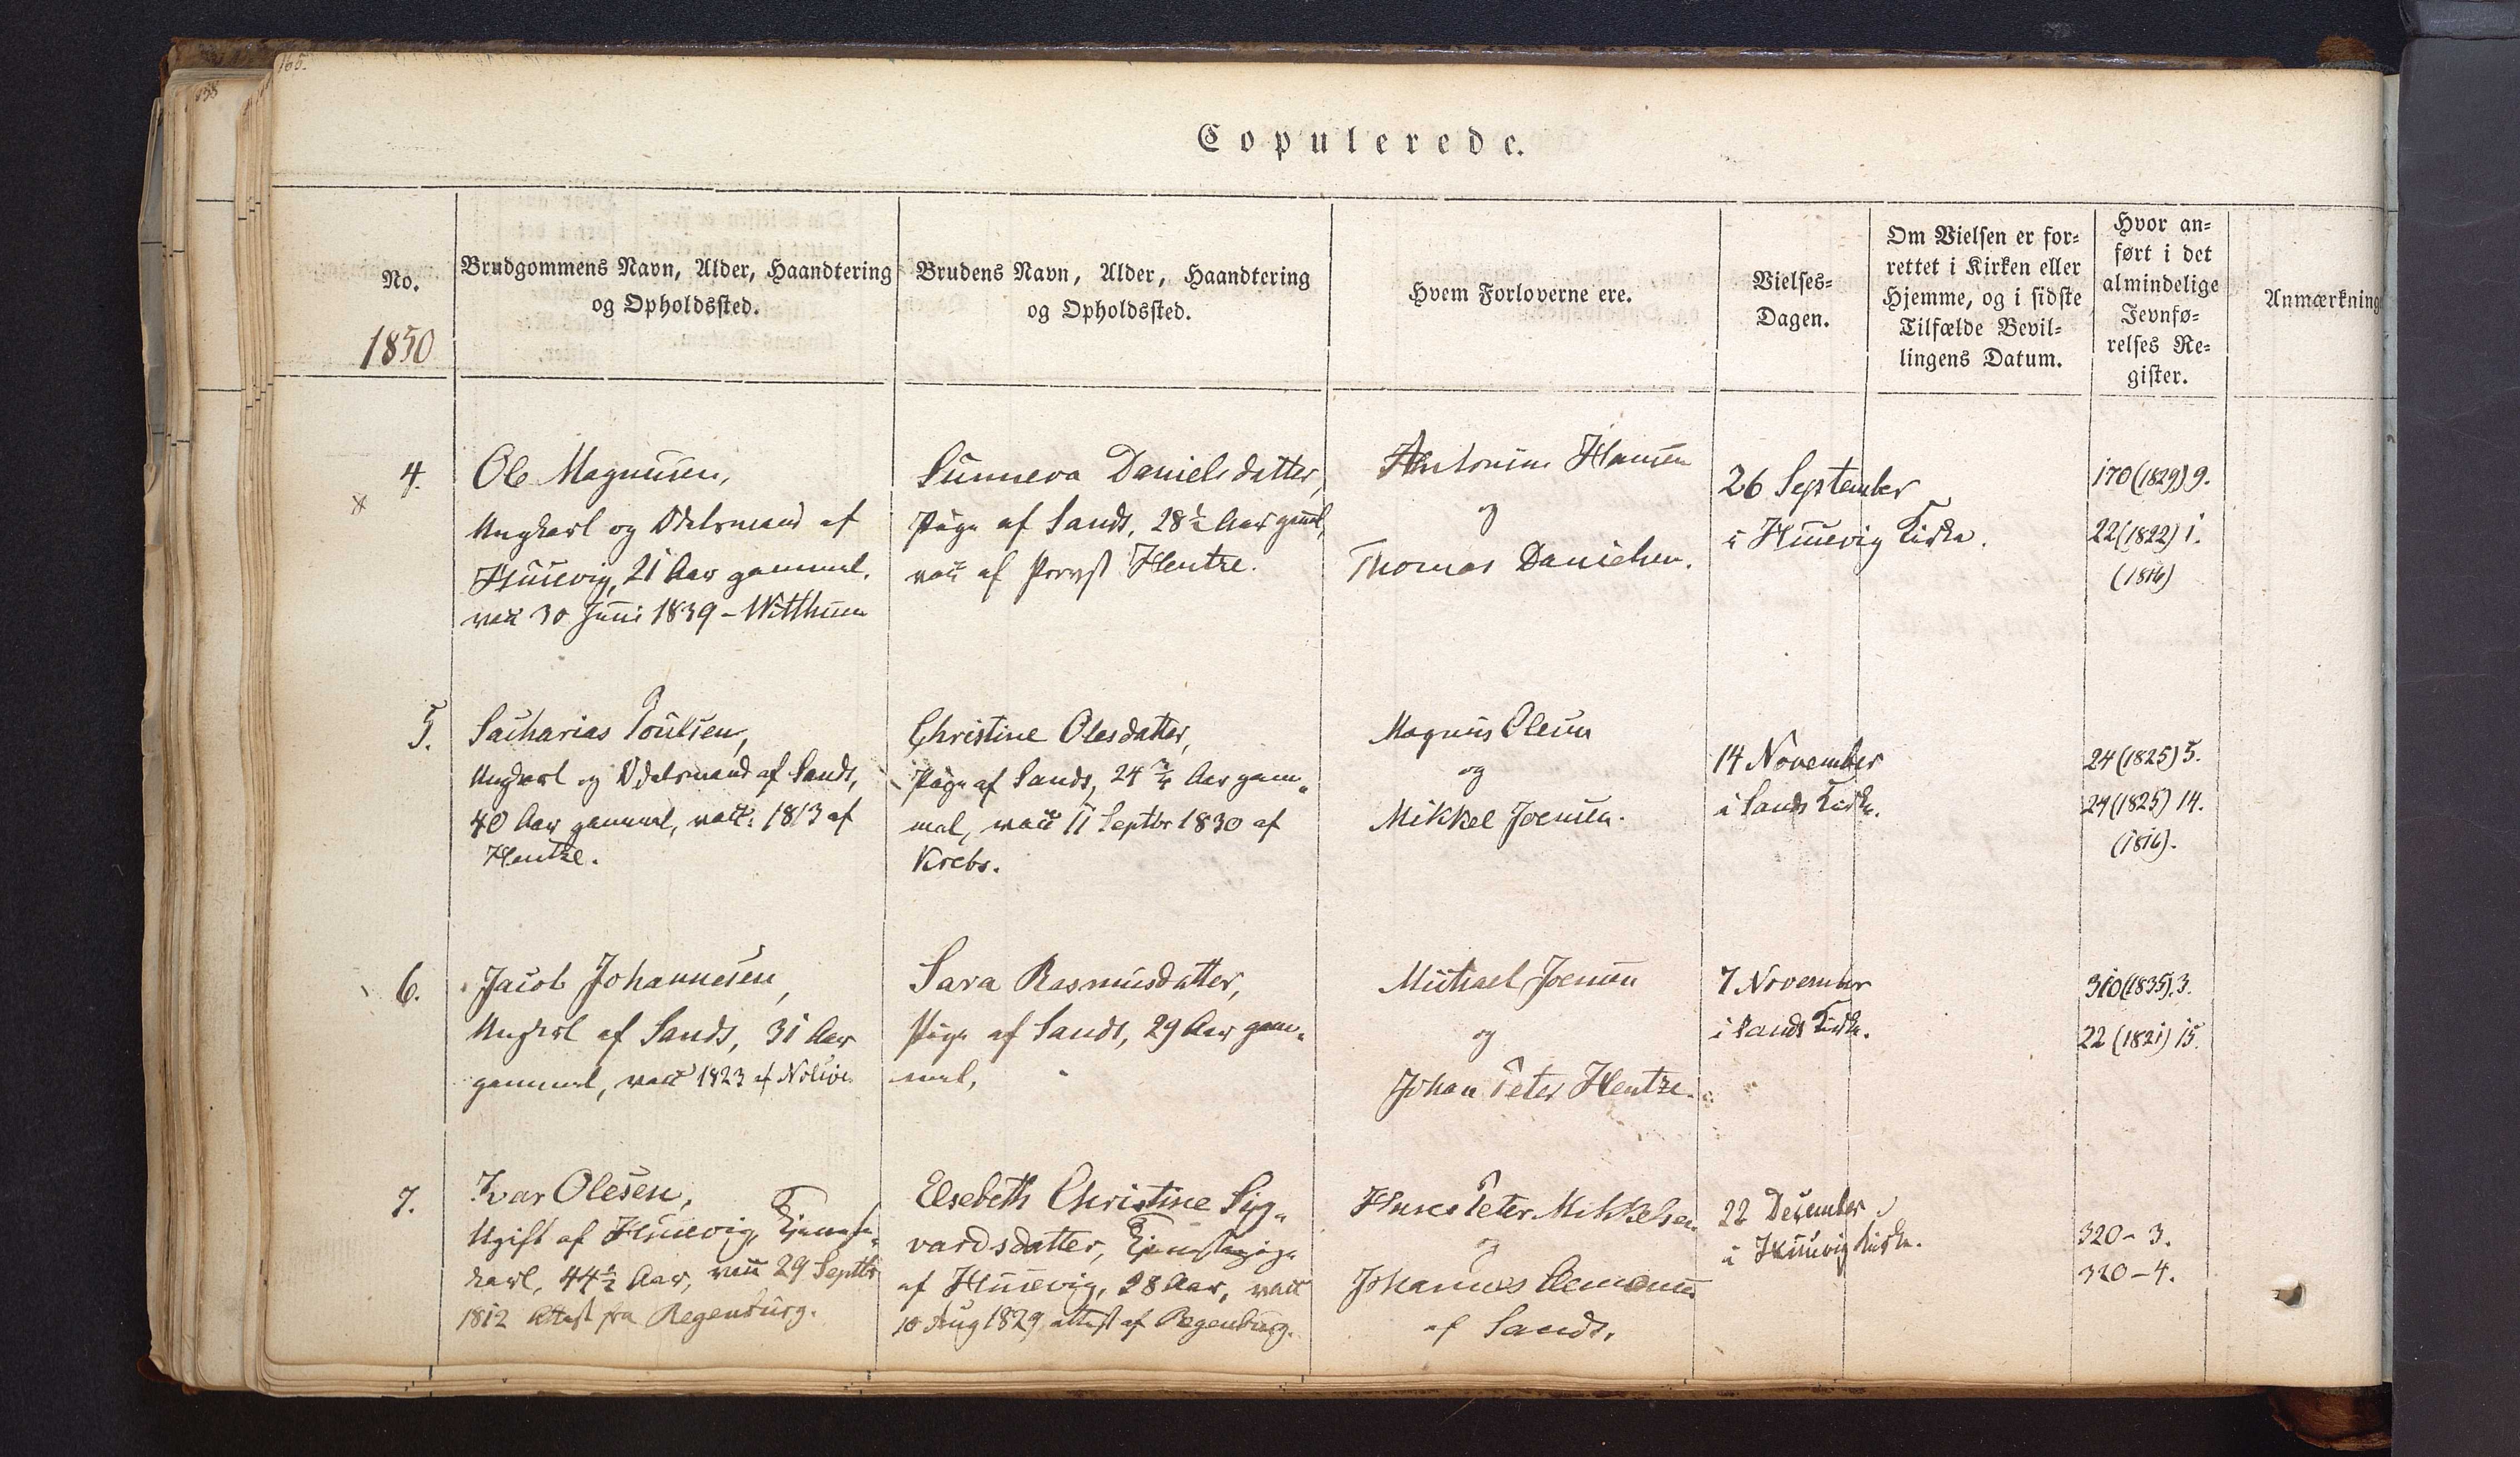 165.
Copulerede.
No.
1850
Brudgommens Navn, Alder, Haandtering
og Opholdssted.
Brudens Navn, Alder, Haandtering
og Opholdssted.
Hvem Forloverne ere.
Vielses-
Dagen.
Om Vielsen er for-
rettet i Kirken eller
Hjemme, og i sidste
Tilfælde Bevil-
lingens Datum.
Hvor an-
ført i det
almindelige
Jevnfø-
relses Re-
gister.
Anmærkning
4.
Ole Magnusen,
Ungkarl og Odelsmand af
Huusevig, 21 Aar gammel.
vacc 30 Juni 1839 -
Sunneva Danielsdatter,
Pige af Sands, 28 1/2 Aar gaml,
vacc af Provst Hentze.
Antonius Hansen
og
Thomas Danielsen.
26 September
i Huusevig Kirke.
170 (1829) 9.
22 (1822) 1.
(1816)
5.
Sacharias Poulsen,
Ungkarl og Odelsmand af Sands,
40 Aar gammel, vacc: 1813 af
Hentze.
Christine Olesdatter,
Pige af Sands, 24 3/4 Aar gam-
mel, vacc 11 Septbr 1830 af
Krebs.
Magnus Olesen
og
Mikkel Joensen.
14 November
i Sands Kirke.
24 (1825) 5.
24 (1825) 14.
(1816).
6.
Jacob Johannesen,
Ungkarl af Sands, 31 Aar
gammel, vacc 1823 af Nolsöe
Sara Rasmusdatter,
Pige af Sands, 29 Aar gam-
mel,
Michael Joensen
og
Johan Peter Hentze.
7 November
i Sands Kirke.
310 (1835). 3.
22 (1821) 15.
7.
Ivar Olesen,
Ugift af Huusevig, Tjeneste-
karl, 44 1/2 Aar, vacc 29 Septbr
1812 Attest fra Regenburg.
Elsebeth Christine Sig-
vardsdatter, Tjenestepige
af Huusevig, 28 Aar, vacc
10 Aug 1829 attest af Regenburg.
Hans Peter Mikkelsen
og
Johannes Clemensen
af Sands.
22 December
i Huusevig Kirke.
320 - 3.
320 - 4.